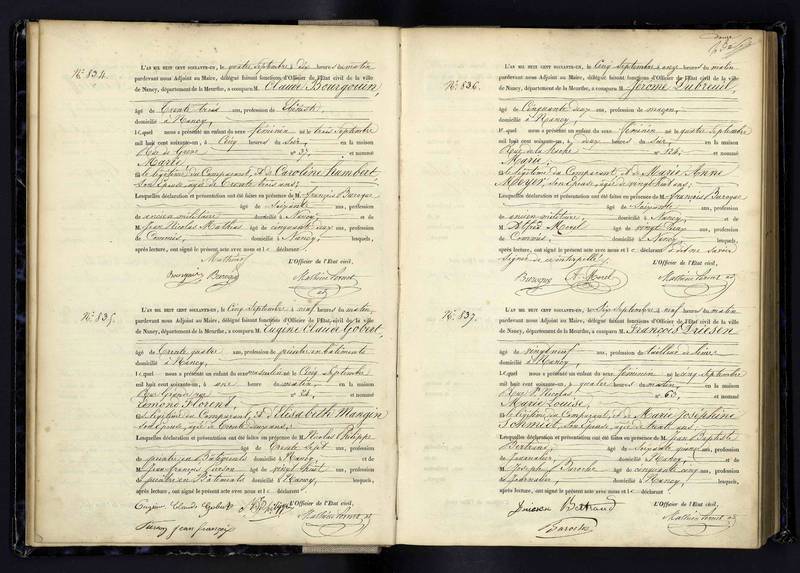 N° 834.
L'AN MIL HUIT CENT SOIXANTE-UN, le quatre Septembre à dix heures du matin
pardevant nous Adjoint au Maire, délégué faisant fonctions d'Officier de l'Etat civil de la ville
de Nancy, département de la Meurthe, a comparu M. Claude Bourgouin,
âgé de Trente trois ans, profession de
domicilié à Nancy,
lequel nous a présenté un enfant du sexe féminin né le trois Septembre
mil huit cent soixante-un, à Cinq heures du Soir, en la maison
Rue de Grève n° 37 et nommé
Marie,
fille légitime du Comparant, & de Caroline Humbert
Son Epouse, agée de Trente trois ans;
Lesquelles déclaration et présentation ont été faites en présence de M. François Baregue
âgé de Soixante ans, profession
de ancien militaire domicilié à Nancy, et de
M. Jean Nicolas Mathias âgé de cinquante deux ans, profession
de Commis, domicilié à Nancy, lesquels,
après lecture, ont signé le présent acte avec nous et le déclarant
Mathias L'Officier de l'Etat civil,
N° 835.
L'AN MIL HUIT CENT SOIXANTE-UN, le Cinq Septembre à neuf heures du matin,
pardevant nous Adjoint au Maire, délégué faisant fonctions d'Officier de l'Etat civil de la ville
de Nancy, département de la Meurthe, a comparu M. Eugène Claude Gobert,
âgé de Trente quatre ans, profession de peintre en bâtiments
domicilié à Nancy,
lequel nous a présenté un enfant du sexe masculin né le Cinq Septembre
mil huit cent soixante-un, à une heure du matin, en la maison
Rue Grande rue n° 24, et nommé
Edmond Florent,
fils légitime du Comparant, & d'Elisabeth Mangin
Son Epouse, agée de Trente deux ans;
Lesquelles déclaration et présentation ont été faites en présence de M. Nicolas Philippe
âgé de Trente Sept ans, profession
de peintre en Bâtiments domicilié à Nancy et de
M. Jean François âgé de vingt huit ans, profession
de peintre en Bâtiments domicilié à Nancy, lesquels,
après lecture, ont signé le présent acte avec nous et le déclarant
L'Officier de l'Etat civil,
Eugène Claude Gobert
jean françois
N° 836.
L'AN MIL HUIT CENT SOIXANTE-UN, le Cinq Septembre à onze heures du matin
pardevant nous Adjoint au Maire, délégué faisant fonctions d'Officier de l'Etat civil de la ville
de Nancy, département de la Meurthe, a comparu M. Jérome Dubreuil,
âgé de Cinquante deux ans, profession de maçon,
domicilié à Nancy,
lequel nous a présenté un enfant du sexe féminin né le quatre Septembre
mil huit cent soixante-un, à deux heures du Soir, en la maison
Rue de la Hache n° 124, et nommé
Marie,
fille légitime du Comparant, & de Marie Anne
Moyer, Son Epouse, agée de vingt huit ans;
Lesquelles déclaration et présentation ont été faites en présence de M. François Baregue
âgé de Soixante ans, profession
de ancien militaire, domicilié à Nancy et de
M. Alfred Morel âgé de vingt deux ans, profession
de Commis, domicilié à Nancy lesquels,
après lecture, ont signé le présent acte avec nous et le déclarant a dit ne savoir
signer de ce interpellé.
L'Officier de l'Etat civil,
A. Morel
N° 837.
L'AN MIL HUIT CENT SOIXANTE-UN, le Six Septembre à neuf heures du matin
pardevant nous Adjoint au Maire, délégué faisant fonctions d'Officier de l'Etat civil de la ville
de Nancy, département de la Meurthe, a comparu M. François Driesen
âgé de vingt neuf ans, profession de tailleur de pierre
domicilié à Nancy,
lequel nous a présenté un enfant du sexe féminin né le cinq Septembre
mil huit cent soixante-un, à quatre heures du matin, en la maison
Rue St Nicolas, n° 63, et nommé
Marie Louise,
fille légitime du Comparant, et de Marie Joséphine
Schmidt, Son Epouse, agée de trente ans,
Lesquelles déclaration et présentation ont été faites en présence de M. Jean Baptiste
Bertrand, âgé de Soixante quinze ans, profession
de Journalier domicilié à Nancy et de
M. Joseph Baroche âgé de cinquante cinq ans, profession
de Journalier, domicilié à Nancy, lesquels,
après lecture, ont signé le présent acte avec nous et le déclarant
L'Officier de l'Etat civil,
Driesen Bertrand
Baroche